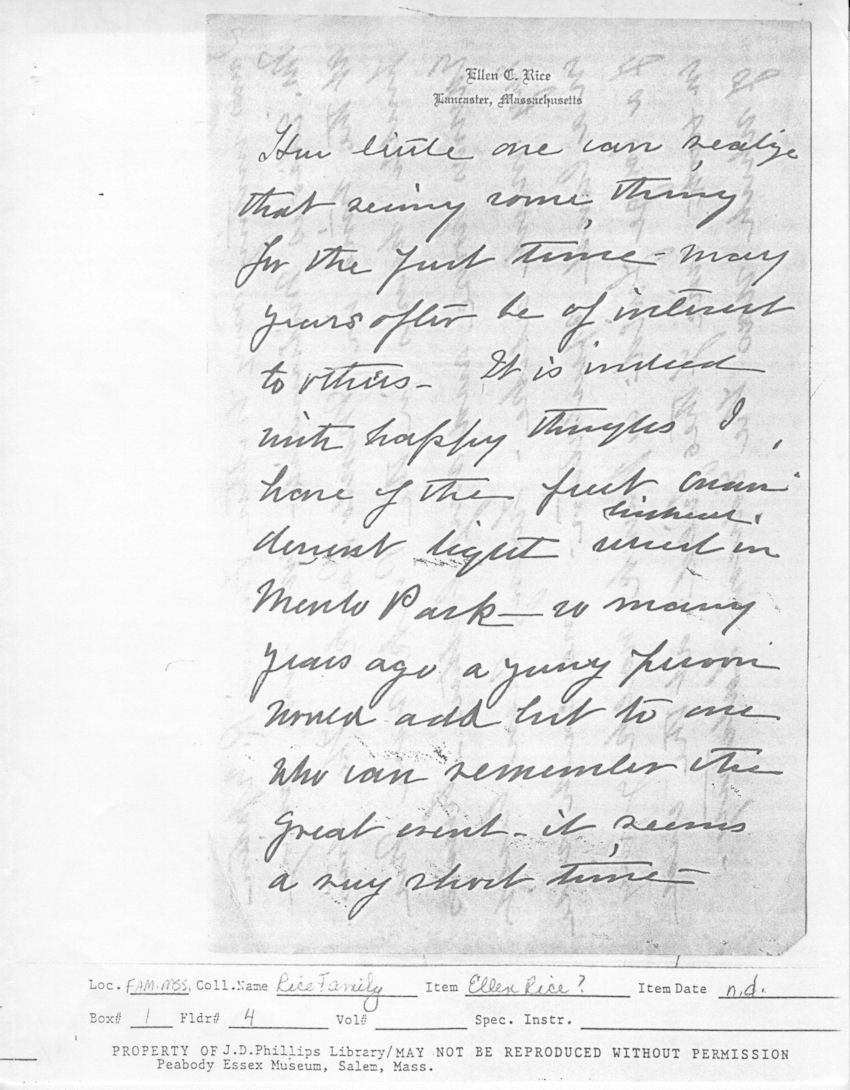 Ellen C. Rice
Lancaster, Massachusetts
How little one can realize
that seeing some thing
for the first time - may
years after be of interest
to others - It is indeed
with happy thoughts I
have of the first Incan-
descent light in
Menlo Park - so many
years ago a young person
would add but to one
who can remember the
great event - it seems
a very short time -
Loc. FAM. MSS. Coll. Name Rice Family Item Ellen Rice? Item Date n.d.
Box# 1 Fldr# 4 Vol# Spec. Instr.
PROPERTY OF J.D.Phillips Library/MAY NOT BE REPRODUCED WITHOUT PERMISSION
Peabody Essex Museum, Salem, Mass.